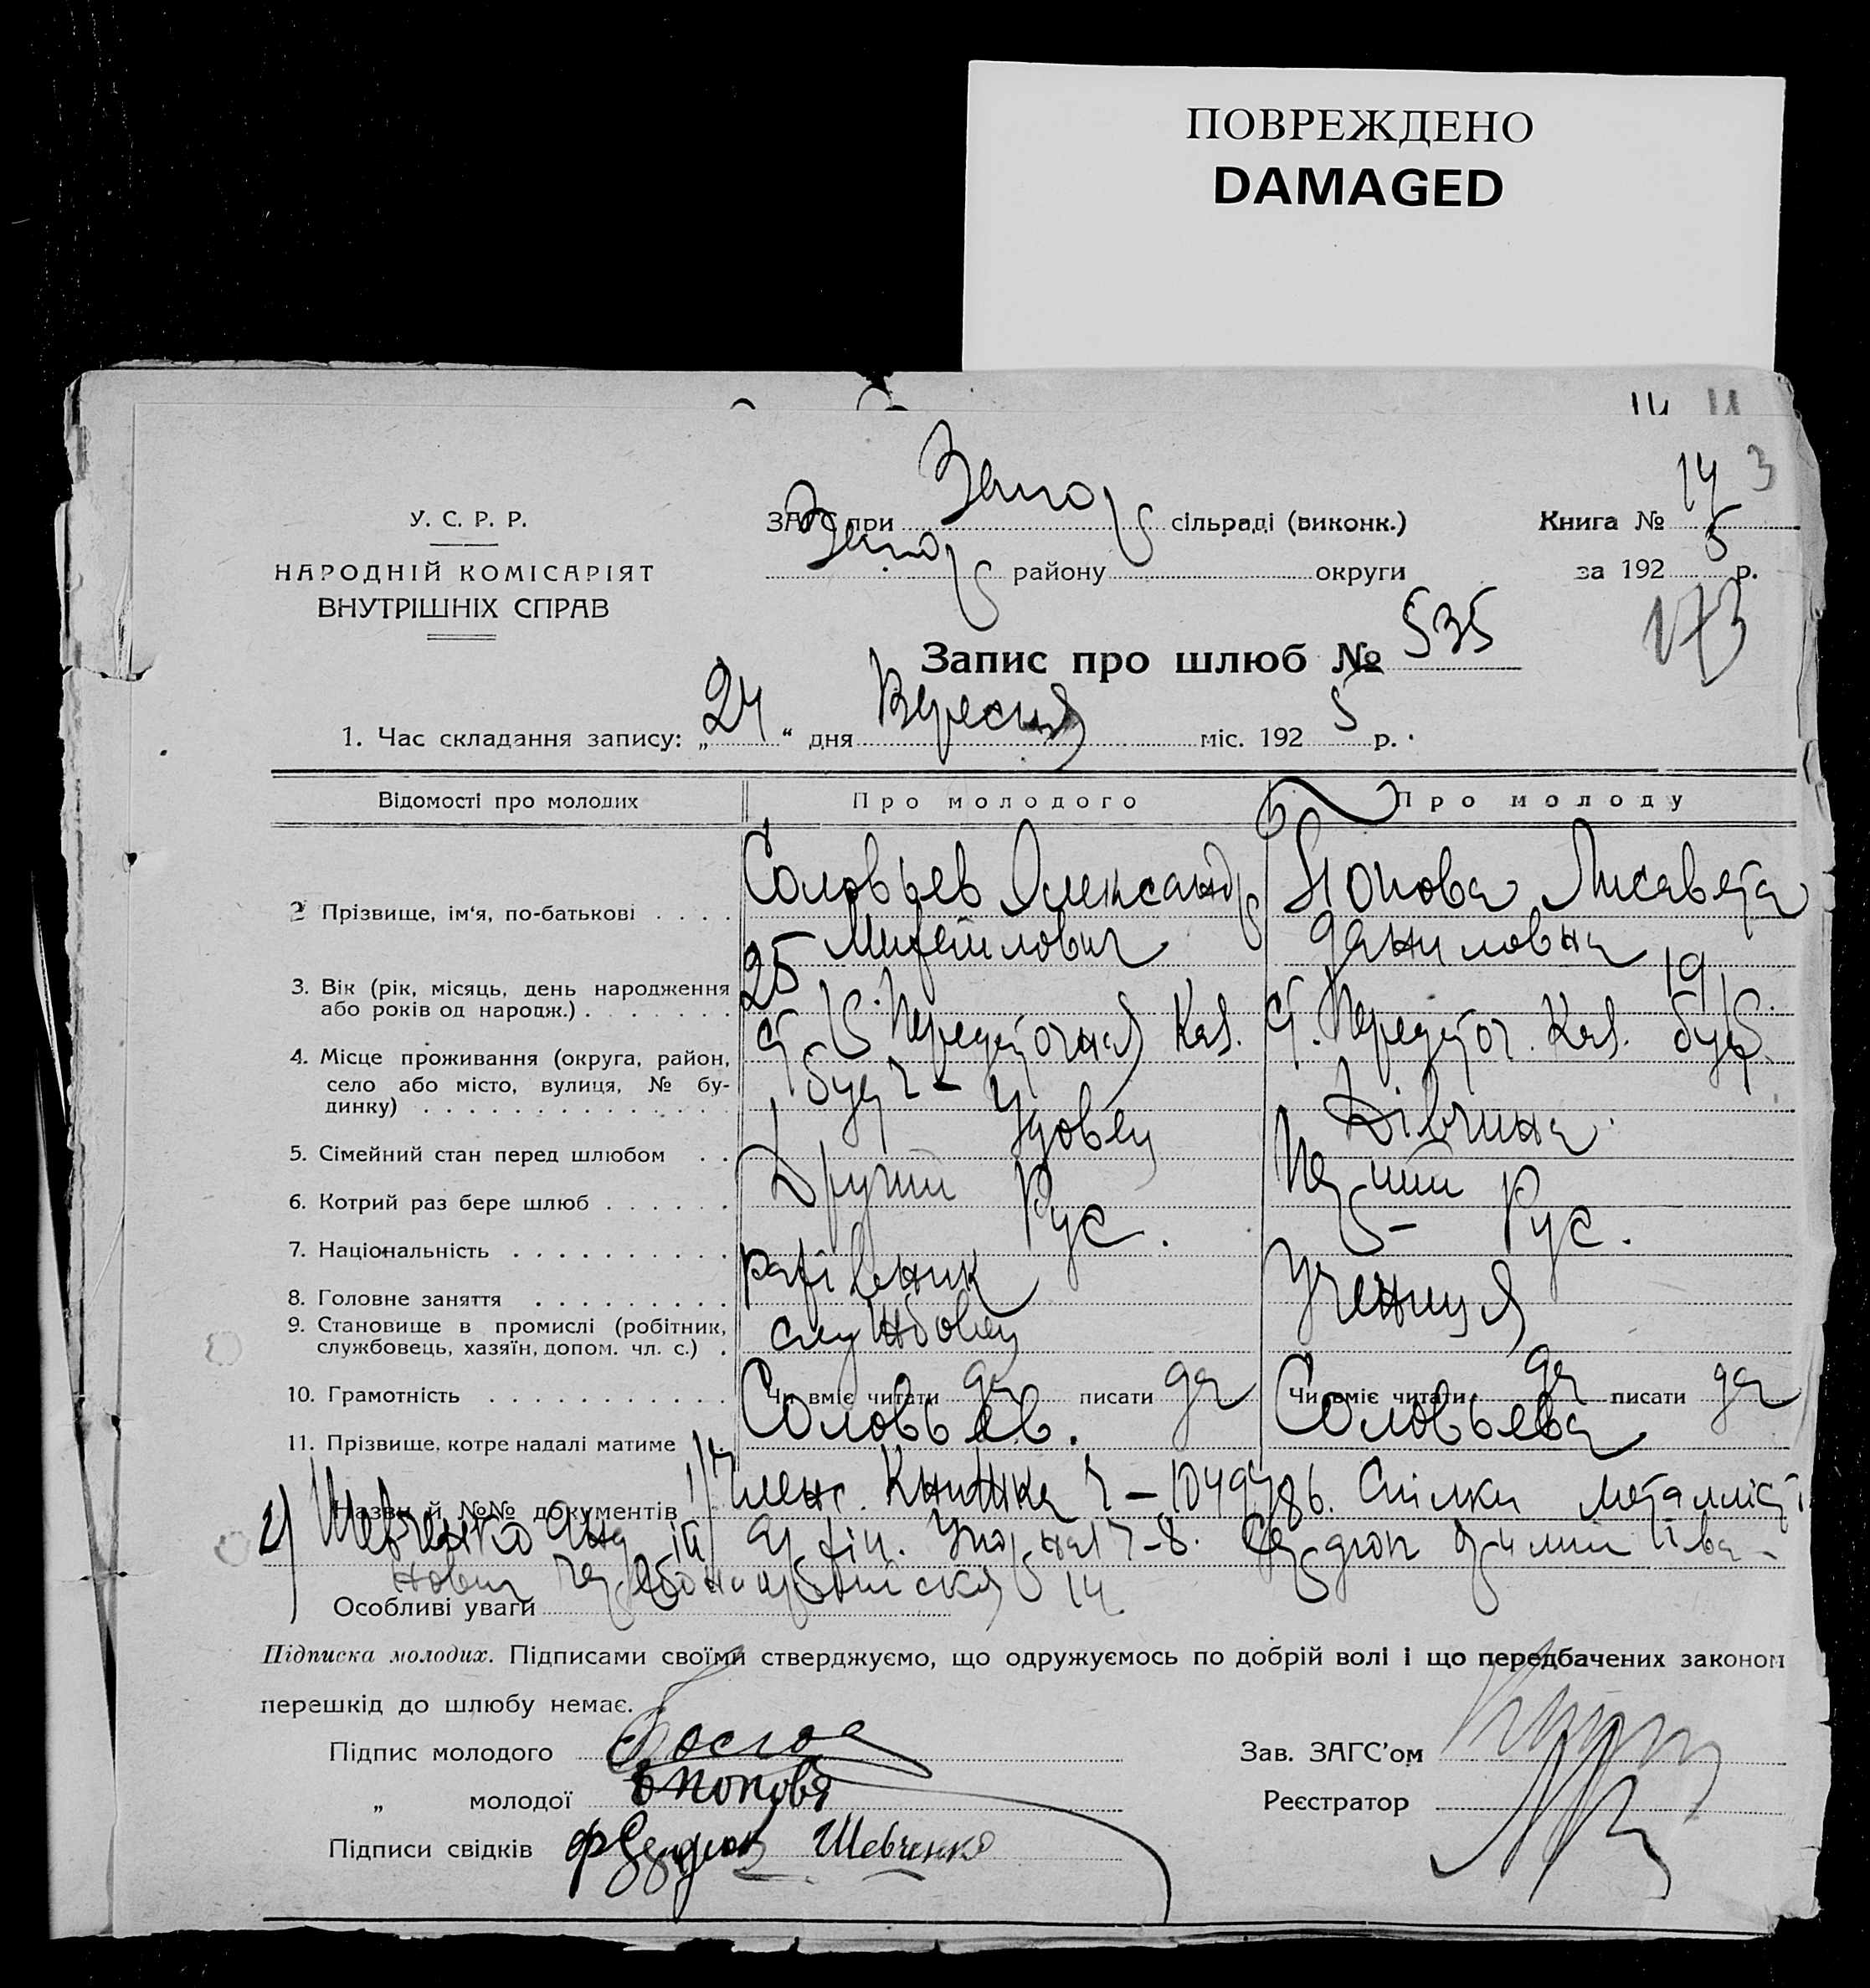 ПОВРЕЖДЕНО
DAMAGED
14 3
У. С. Р. Р.
НАРОДНІЙ КОМІСАРІЯТ
ВНУТРІШНІХ СПРАВ
ЗАГС при Запор сільраді (виконк.)
Запор району округи
Книга № 14
за 192 5 р.
173
Запис про шлюб № 535
1. Час складання запису: „ 24 “ дня Вересня міс. 192 5 р.
Відомості про молодих Про молодого Про молоду
2 Прізвище, ім‘я, по-батькові Соловьев Олександр Михайлович Попова Лисавета Даниловна
3. Вік (рік, місяць, день народження
або років од народж.) 25 19
4. Місце проживання (округа, район,
село або місто, вулиця, № бу-
динку) Передаточная Каз. буд Ч – Передаточ. Каз. буд.
5. Сімейний стан перед шлюбом Удовец Дівчина
6. Котрий раз бере шлюб Другий Перший
7. Національність Рус. Рус.
8. Головне заняття Учениця
9. Становище в промислі (робітник,
службовець, хазяїн, допом. чл. с.) службовец
10. Грамотність Чи вміє читати да писати да Чи вміє читати да писати да
11. Прізвище, котре надалі матиме Соловьев. Соловьева
Назви й №№ документів 1) Членс. Книжка Ч – Спілки Металлісті
2) Шевченко Андрій
нович 14
Особливі уваги
Підписка молодих. Підписами своїми стверджуємо, що одружуємось по добрій волі і що передбачених законом
перешкід до шлюбу немає.
Підпис молодого
Зав. ЗАГС’ом
„ молодої Попова
Реєстратор
Підписи свідків Шевченко